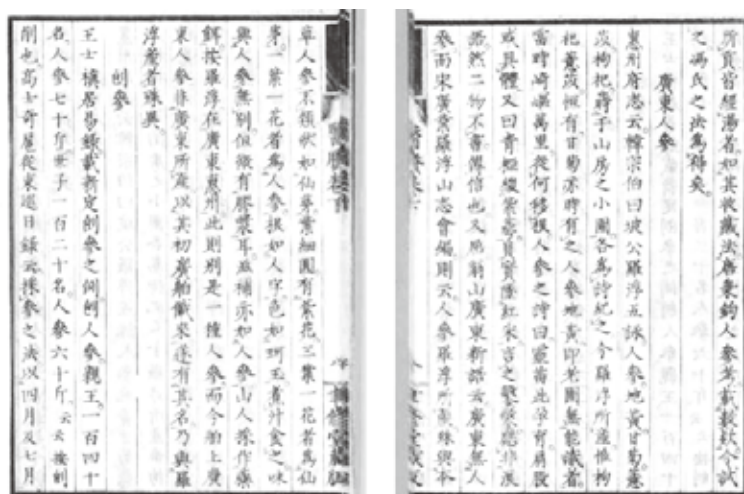 所貢皆經湯者如其收藏法唐秉鈞人參考載數款今試
之馮氏之法為得矣
廣東人參
惠州府志云韓宗伯曰坡公羅浮五詠人參地黃甘菊薏
苡枸杞蒔于山房之小圃各為詩紀之今羅浮所產惟枸
杞薏苡恒有甘菊亦時有之人參地黃即老圃無能識者
當時崎嶇萬里從何移根人參之詩曰靈苗此孕育肩股
或具體又曰青椏綴紫萼圓實墮紅米言之鑿鑿想非漫
語然二物不書傳信也又屈翁山廣東新語云廣東無人
參而宋廣業羅浮山志會編則云人參羅浮所產殊與本
草人參不類狀如仙茅葉細圓有紫花三葉一花者為仙
茅一葉一花者為人參根如人字色如珂玉煮汁食之味
與人參無別但微有膠漿耳滋補亦如人參山人採作藥
餌按羅浮在廣東惠州此則別是一種人參而今舶上廣
東人參非廣東所產以其初廣舶載來遂有其名乃與羅
浮產者殊異
刨參
王士禎居易錄載新定刨參之例刨人參親王一百四十
名人參七十斤世子一百二十名人參六十斤云云按刨
削也高士奇扈從東巡日錄云採參之法以四月及七月